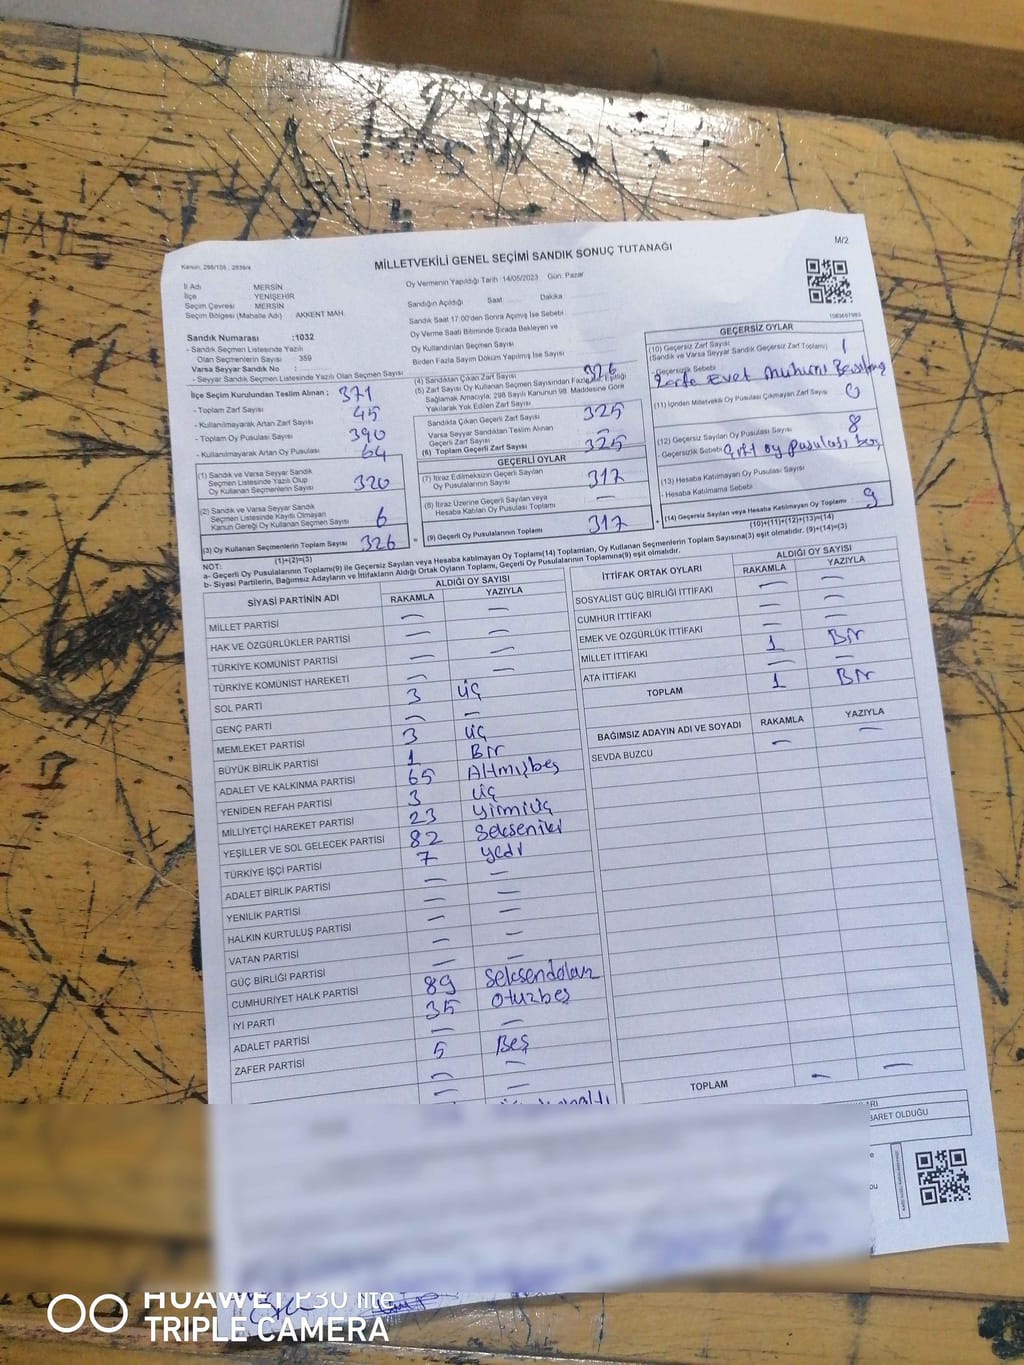 Kanun, 298/105 ; 2839/4
MİLLETVEKİLİ GENEL SEÇİMİ SANDIK SONUÇ TUTANAĞI
M/2
İl Adı MERSİN
İlçe YENİŞEHİR
Seçim Çevresi MERSİN
Seçim Bölgesi (Mahalle Adı) AKKENT MAH.
Oy Vermenin Yapıldığı Tarih :14/05/2023 Gün: Pazar
Sandığın Açıldığı Saat Dakika
Sandık Saat 17:00'den Sonra Açılmış İse Sebebi
Oy Verme Saati Bitiminde Sırada Bekleyen ve
Oy Kullandırılan Seçmen Sayısı
Birden Fazla Sayım Döküm Yapılmış İse Sayısı
Sandık Numarası :1032
- Sandık Seçmen Listesinde Yazılı
Olan Seçmenlerin Sayısı 359
Varsa Seyyar Sandık No :
- Seyyar Sandık Seçmen Listesinde Yazılı Olan Seçmen Sayısı
İlçe Seçim Kurulundan Teslim Alınan ;
- Toplam Zarf Sayısı 371
- Kullanılmayarak Artan Zarf Sayısı 45
- Toplam Oy Pusulası Sayısı 390
- Kullanılmayarak Artan Oy Pusulası 64
(1) Sandık ve Varsa Seyyar Sandık
Seçmen Listesinde Yazılı Olup
Oy Kullanan Seçmenlerin Sayısı 320
(2) Sandık ve Varsa Seyyar Sandık
Seçmen Listesinde Kayıtlı Olmayan
Kanun Gereği Oy Kullanan Seçmen Sayısı 6
(3) Oy Kullanan Seçmenlerin Toplam Sayısı 326
(1)+(2)=(3)
(4) Sandıktan Çıkan Zarf Sayısı 326
(5) Zarf Sayısı Oy Kullanan Seçmen Sayısından Fazla ise, Eşitliği
Sağlamak Amacıyla; 298 Sayılı Kanunun 98. Maddesine Göre
Yakılarak Yok Edilen Zarf Sayısı
Sandıkta Çıkan Geçerli Zarf Sayısı 325
Varsa Seyyar Sandıktan Teslim Alınan
Geçerli Zarf Sayısı —
(6) Toplam Geçerli Zarf Sayısı 325
GEÇERLİ OYLAR
(7) İtiraz Edilmeksizin Geçerli Sayılan
Oy Pusulalarının Sayısı 317
(8) İtiraz Üzerine Geçerli Sayılan veya
Hesaba Katılan Oy Pusulası Toplamı —
= (9) Geçerli Oy Pusulalarının Toplamı 317
GEÇERSİZ OYLAR
(10) Geçersiz Zarf Sayısı 1
(Sandık ve Varsa Seyyar Sandık Geçersiz Zarf Toplamı)
- Geçersizlik Sebebi Zarfa Evet Mührü Basılmış
(11) İçinden Milletvekili Oy Pusulası Çıkmayan Zarf Sayısı 0
(12) Geçersiz Sayılan Oy Pusulası Sayısı 8
- Geçersizlik Sebebi Çift oy pusulası boş
(13) Hesaba Katılmayan Oy Pusulası Sayısı
- Hesaba Katılmama Sebebi
+ (14) Geçersiz Sayılan veya Hesaba Katılmayan Oy Toplamı : 9
(10)+(11)+(12)+(13)=(14)
NOT:
a- Geçerli Oy Pusulalarının Toplamı(9) ile Geçersiz Sayılan veya Hesaba katılmayan Oy Toplamı(14) Toplamları, Oy Kullanan Seçmenlerin Toplam Sayısına(3) eşit olmalıdır. (9)+(14)=(3)
b- Siyasi Partilerin, Bağımsız Adayların ve İttifakların Aldığı Ortak Oyların Toplamı, Geçerli Oy Pusulalarının Toplamına(9) eşit olmalıdır.
SİYASİ PARTİNİN ADI ALDIĞI OY SAYISI
RAKAMLA YAZIYLA
MİLLET PARTİSİ — —
HAK VE ÖZGÜRLÜKLER PARTİSİ — —
TÜRKİYE KOMÜNİST PARTİSİ — —
TÜRKİYE KOMÜNİST HAREKETİ — —
SOL PARTİ 3 üç
GENÇ PARTİ — —
MEMLEKET PARTİSİ 3 üç
BÜYÜK BİRLİK PARTİSİ 1 Bir
ADALET VE KALKINMA PARTİSİ 65 Altmışbeş
YENİDEN REFAH PARTİSİ 3 üç
MİLLİYETÇİ HAREKET PARTİSİ 23 yirmiüç
YEŞİLLER VE SOL GELECEK PARTİSİ 82 Sekseniki
TÜRKİYE İŞÇİ PARTİSİ 7 yedi
ADALET BİRLİK PARTİSİ — —
YENİLİK PARTİSİ — —
HALKIN KURTULUŞ PARTİSİ — —
VATAN PARTİSİ — —
GÜÇ BİRLİĞİ PARTİSİ — —
CUMHURİYET HALK PARTİSİ 89 Seksendokuz
İYİ PARTİ 35 otuzbeş
ADALET PARTİSİ — —
ZAFER PARTİSİ 5 Beş
İTTİFAK ORTAK OYLARI ALDIĞI OY SAYISI
RAKAMLA YAZIYLA
SOSYALİST GÜÇ BİRLİĞİ İTTİFAKI — —
CUMHUR İTTİFAKI — —
EMEK VE ÖZGÜRLÜK İTTİFAKI — —
MİLLET İTTİFAKI 1 Bir
ATA İTTİFAKI — —
TOPLAM 1 Bir
BAĞIMSIZ ADAYIN ADI VE SOYADI RAKAMLA YAZIYLA
SEVDA BUZCU — —
TOPLAM — —
BARET OLDUĞU
HUAWEI P30 lite
TRIPLE CAMERA